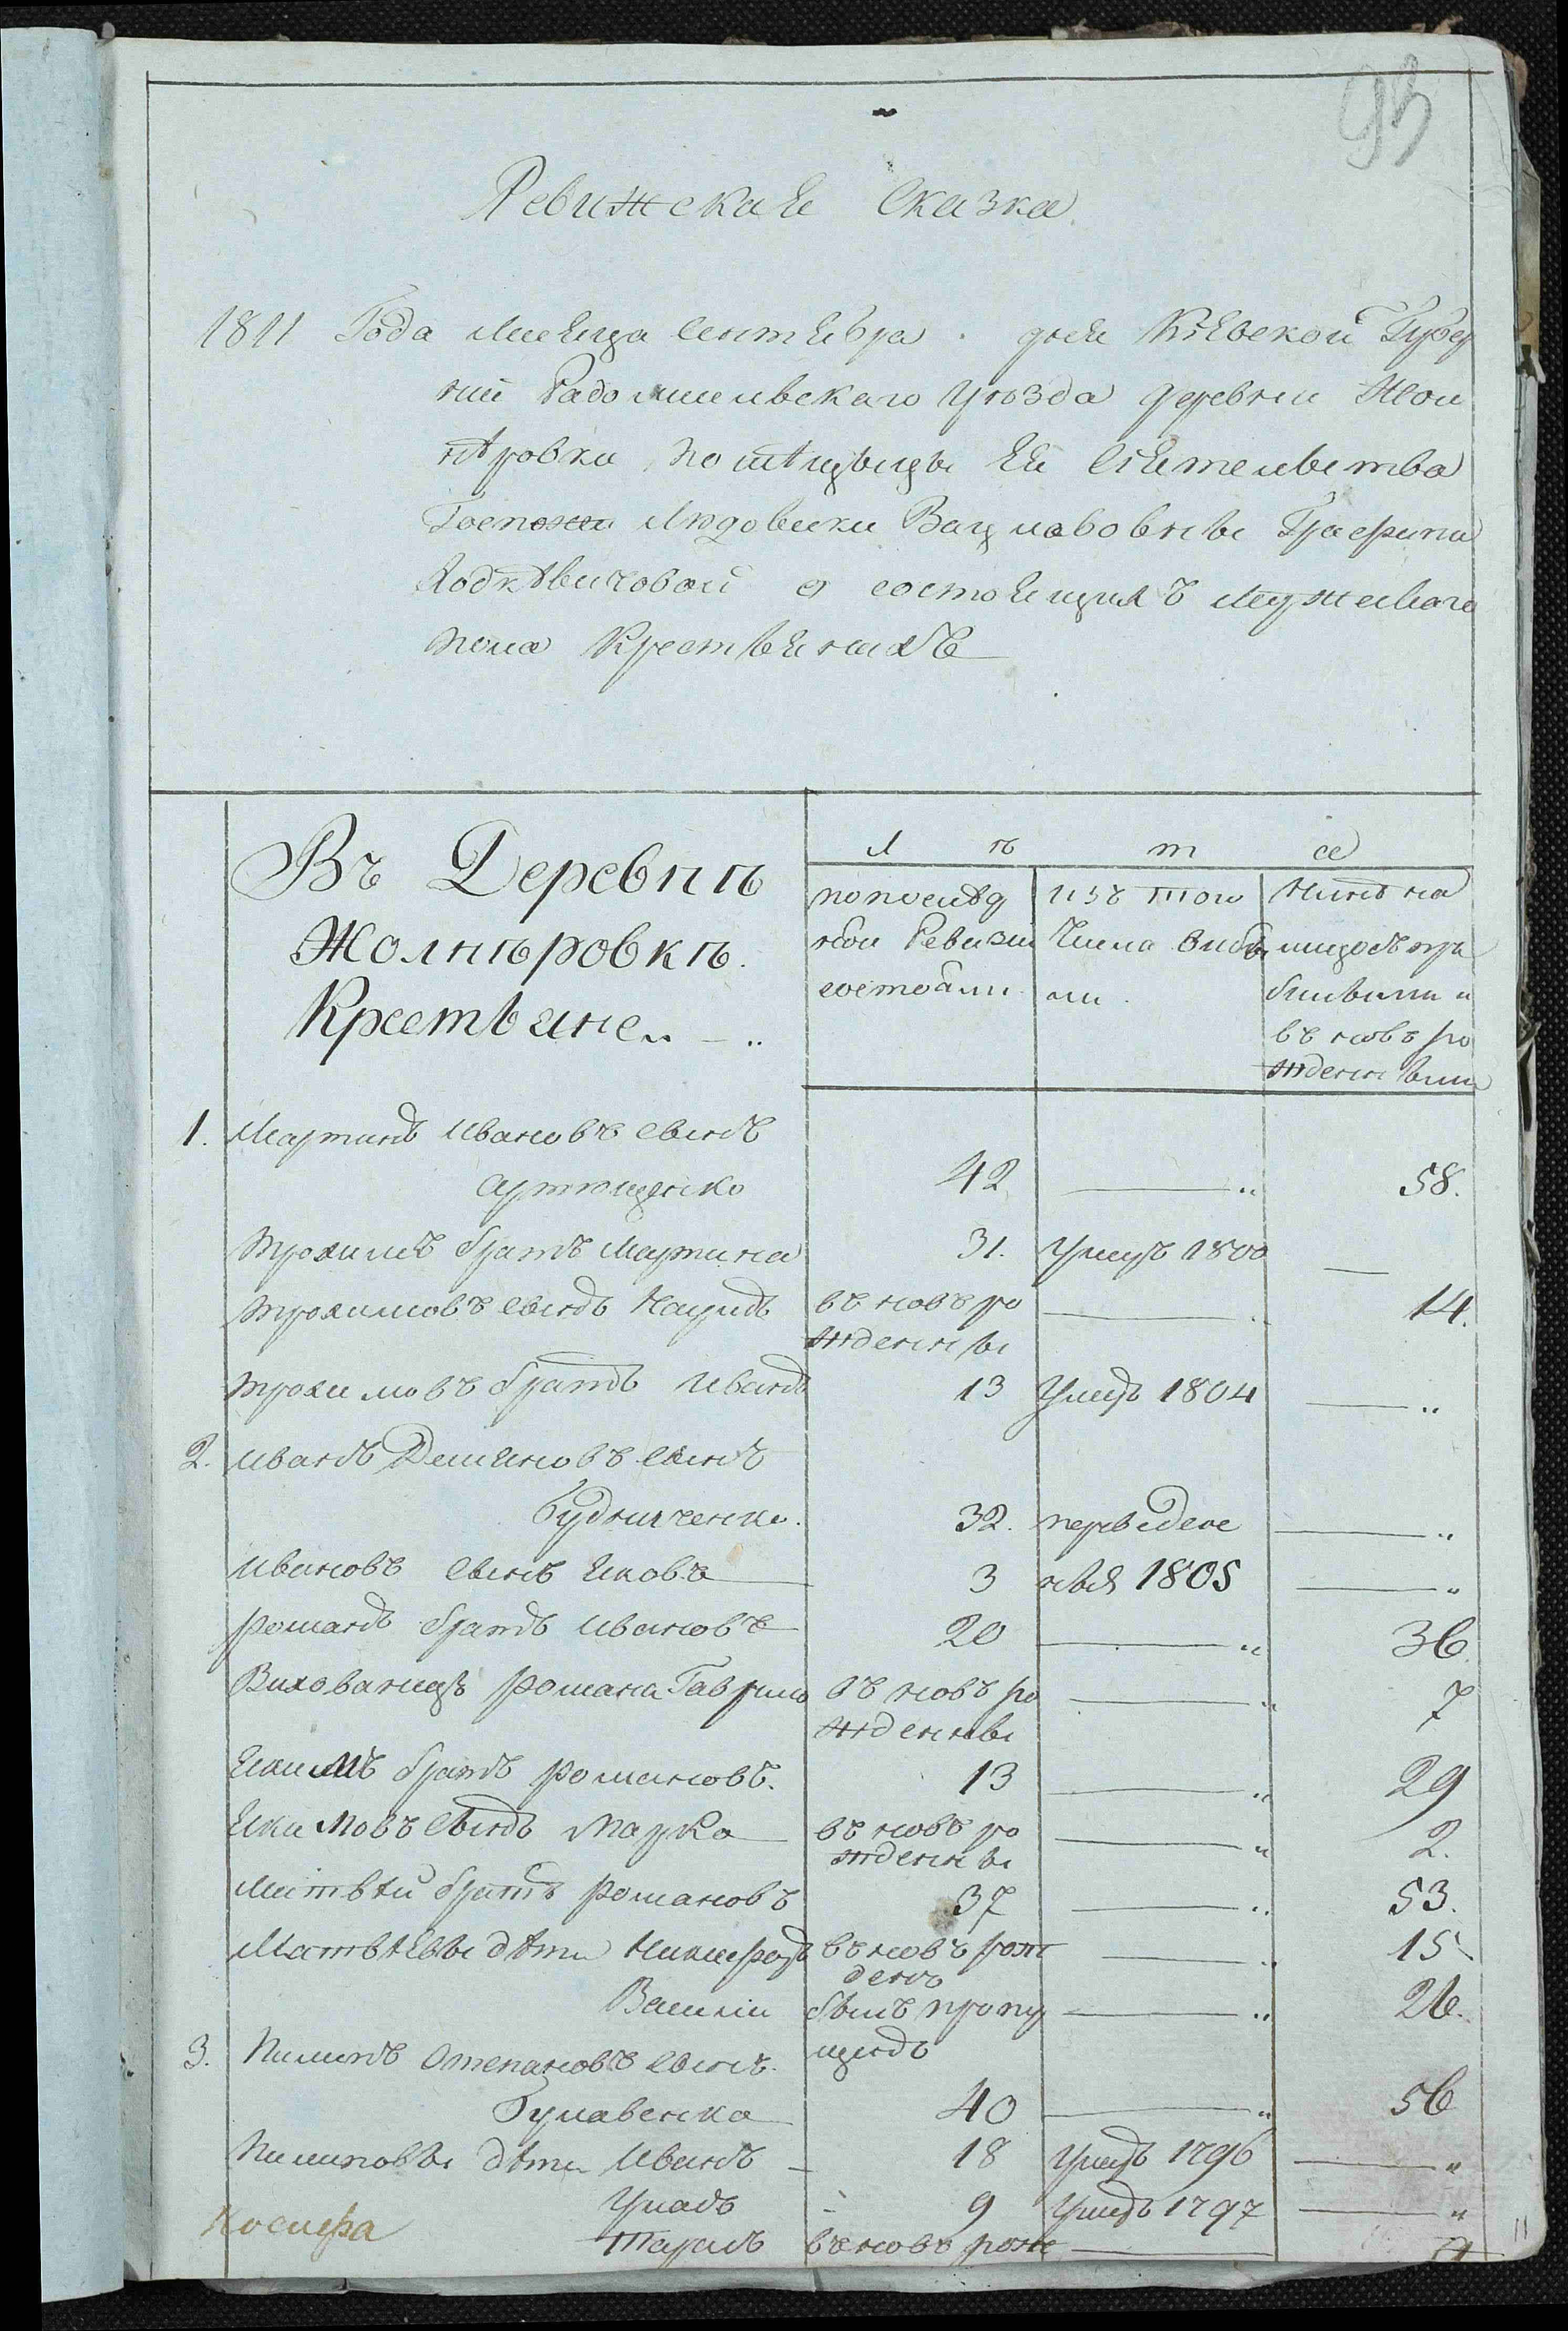 93
Ревижская Сказка
1811 Года Месяца Сентября . дня Кіевской Губер
ніи Радомишльвскаго Уѣзда деревни Жол
нѣровки, помѣщыцы Ея Сіятельства
Госпожи Людовики Вацлавовны Графини
Ходкѣвичовой о состоящихъ Мужеска
пола Крестьянахъ
Въ Деревнѣ
Жолнѣровкѣ.
Крестьяне
Л ѣ т а
по послѣд
ной Ревизіи
состояли
изъ того
числа выбы
ли
Нинѣ на
лицо съ при
бывшими и
въ новъ ро
жденными
1. Мартинъ Ивановъ сынъ
Артюшенко 42 — 58.
Трохимъ братъ Мартина 31. Умеръ 1800 —
Трохимовъ сынъ Кацридъ въ новъ ро
жденны — 14.
Трохимовъ братъ Иванъ 13 Умеръ 1804 —
2. Иванъ Демяновъ сынъ
Будниченко. 32. переведене —
Ивановъ сынъ Яковъ 3 ныя 1805 —
Романъ братъ Ивановъ 20 — 36.
Вихованецъ Романа Гаврило въ новъ ро
жденны — 7
Якимъ братъ Романовъ. 13 — 29
Якимовъ сынъ Марко въ новъ ро
жденны — 2.
Матвѣй братъ Романовъ 37 — 53.
Матвѣевы дѣти Никифоръ въ новъ рож
денъ — 15.
Василій былъ пропу
щенъ — 26.
3. Пилипъ Степановъ сынъ.
Булавенко 40 — 56
Пилиповы дѣти Иванъ — 18 Умеръ 1796 —
Уладъ - 9 Умеръ 1797 —
Тарасъ въ новъ рож —